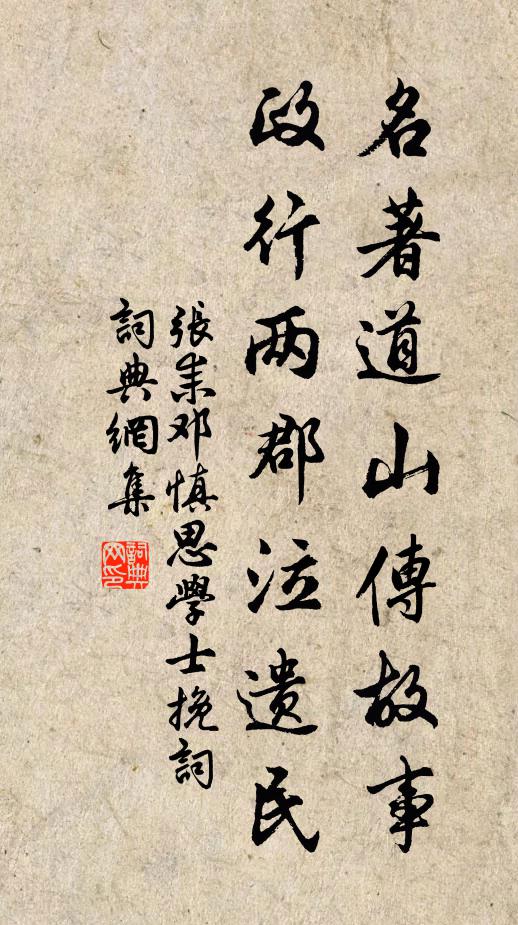 名著道山傳故事
政行两郡泣遺民
張耒邓慎思學士挽詞
詞典網集
詞典网印